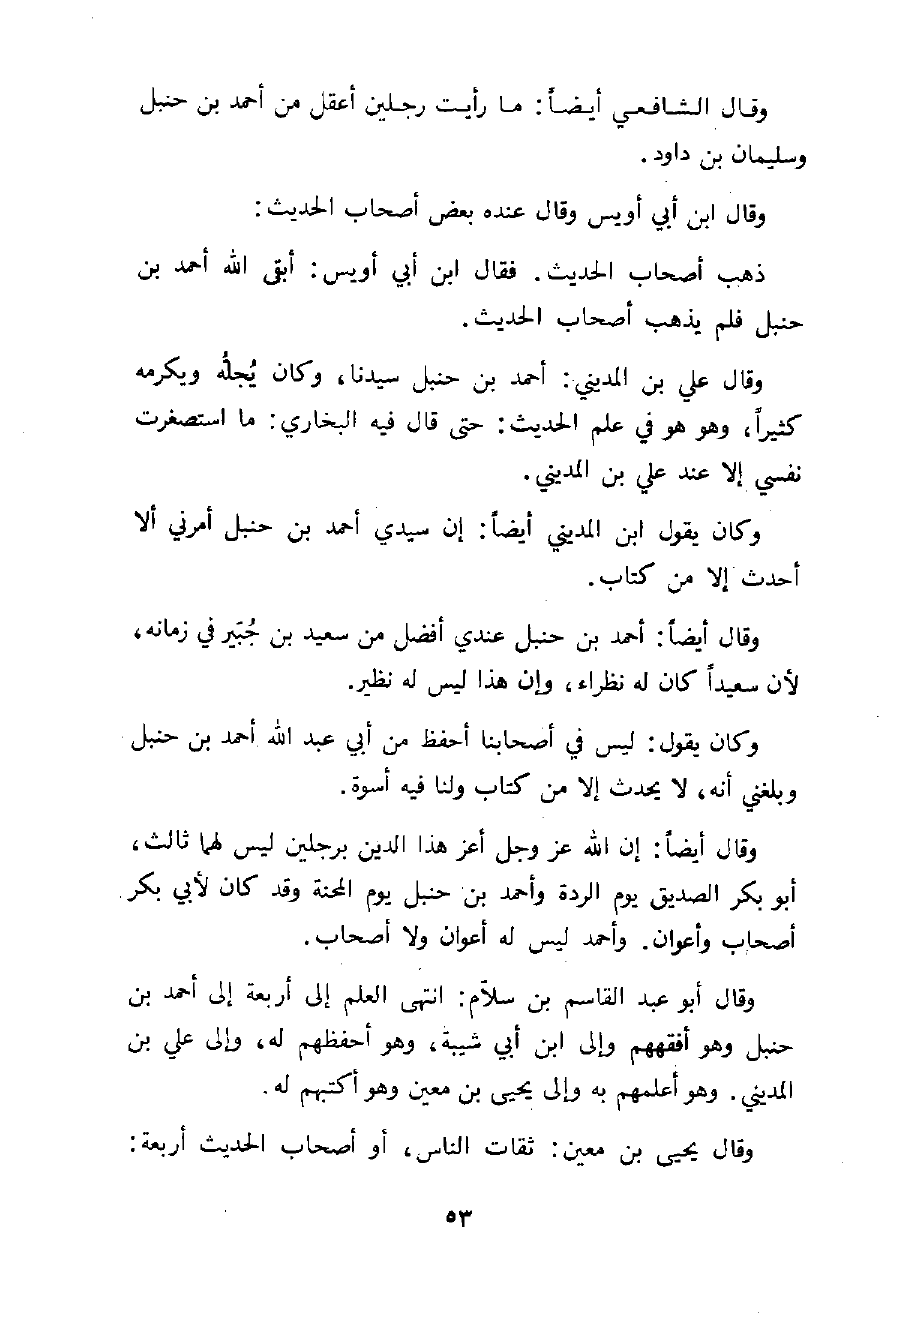 وقال الشافعي أيضاً: ما رأيت رجلين أعقل من أحمد بن حنبل
وسليمان بن داود.
وقال ابن أبي أويس وقال عنده بعض أصحاب الحديث:
ذهب أصحاب الحديث. فقال ابن أبي أويس: أبقى الله أحمد بن
حنبل فلم يذهب أصحاب الحديث.
وقال علي بن المديني: أحمد بن حنبل سيدنا، وكان يُجلُّه ويكرمه
كثيراً، وهو هو في علم الحديث: حتى قال فيه البخاري: ما استصغرت
نفسي إلا عند علي بن المديني.
وكان يقول ابن المديني أيضاً: إن سيدي أحمد بن حنبل أمرني ألا
أحدث إلا من كتاب.
وقال أيضاً: أحمد بن حنبل عندي أفضل من سعيد بن جُبَير في زمانه،
لأن سعيداً كان له نظراء، وإن هذا ليس له نظير.
وكان يقول: ليس في أصحابنا أحفظ من أبي عبد الله أحمد بن حنبل
وبلغني أنه، لا يحدث إلا من كتاب ولنا فيه أسوة.
وقال أيضاً: إن الله عز وجل أعز هذا الدين برجلين ليس لهما ثالث،
أبو بكر الصديق يوم الردة وأحمد بن حنبل يوم المحنة وقد كان لأبي بكر
أصحاب وأعوان. وأحمد ليس له أعوان ولا أصحاب.
وقال أبو عبد القاسم بن سلاّم: انتهى العلم إلى أربعة إلى أحمد بن
حنبل وهو أفقههم وإلى ابن أبي شيبة، وهو أحفظهم له، وإلى علي بن
المديني. وهو أعلمهم به وإلى يحيى بن معين وهو أكتبهم له.
وقال يحيى بن معين: ثقات الناس، أو أصحاب الحديث أربعة:
٥٣